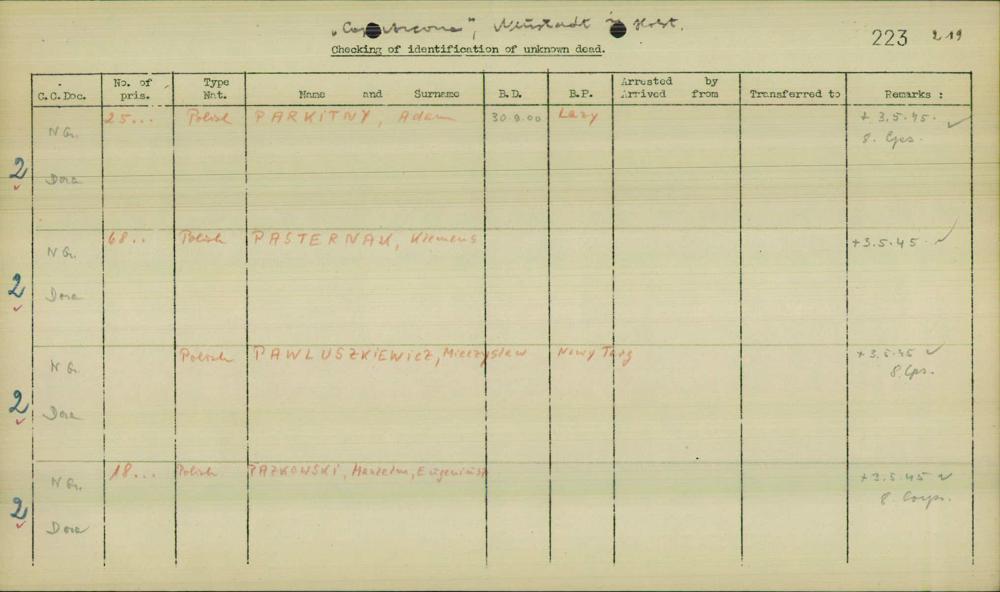 „Cap Arcona", Neustadt in Holst.
223 219
Checking of identification of unknown dead.
C.C.Doc. No. of pris. Type Nat. Name and Surname B.D. B.P. Arrested by Arrived from Transferred to Remarks :
N Gr. 25... Polish PARKITNY, Adam 30.9.00 Lazy + 3.5.45.
8. Cps.
2 Dora
N Gr. 68.. Polish PASTERNAK, Klemens +3.5.45
2 Dora
N Gr. Polish PAWLUSZKIEWICZ, Mieczyslaw Nowy Targ +3.5.45
8 Cps.
2 Dora
N Gr. 18... Polish PAZKOWSKI, +3.5.45
8. Corps.
2 Dora